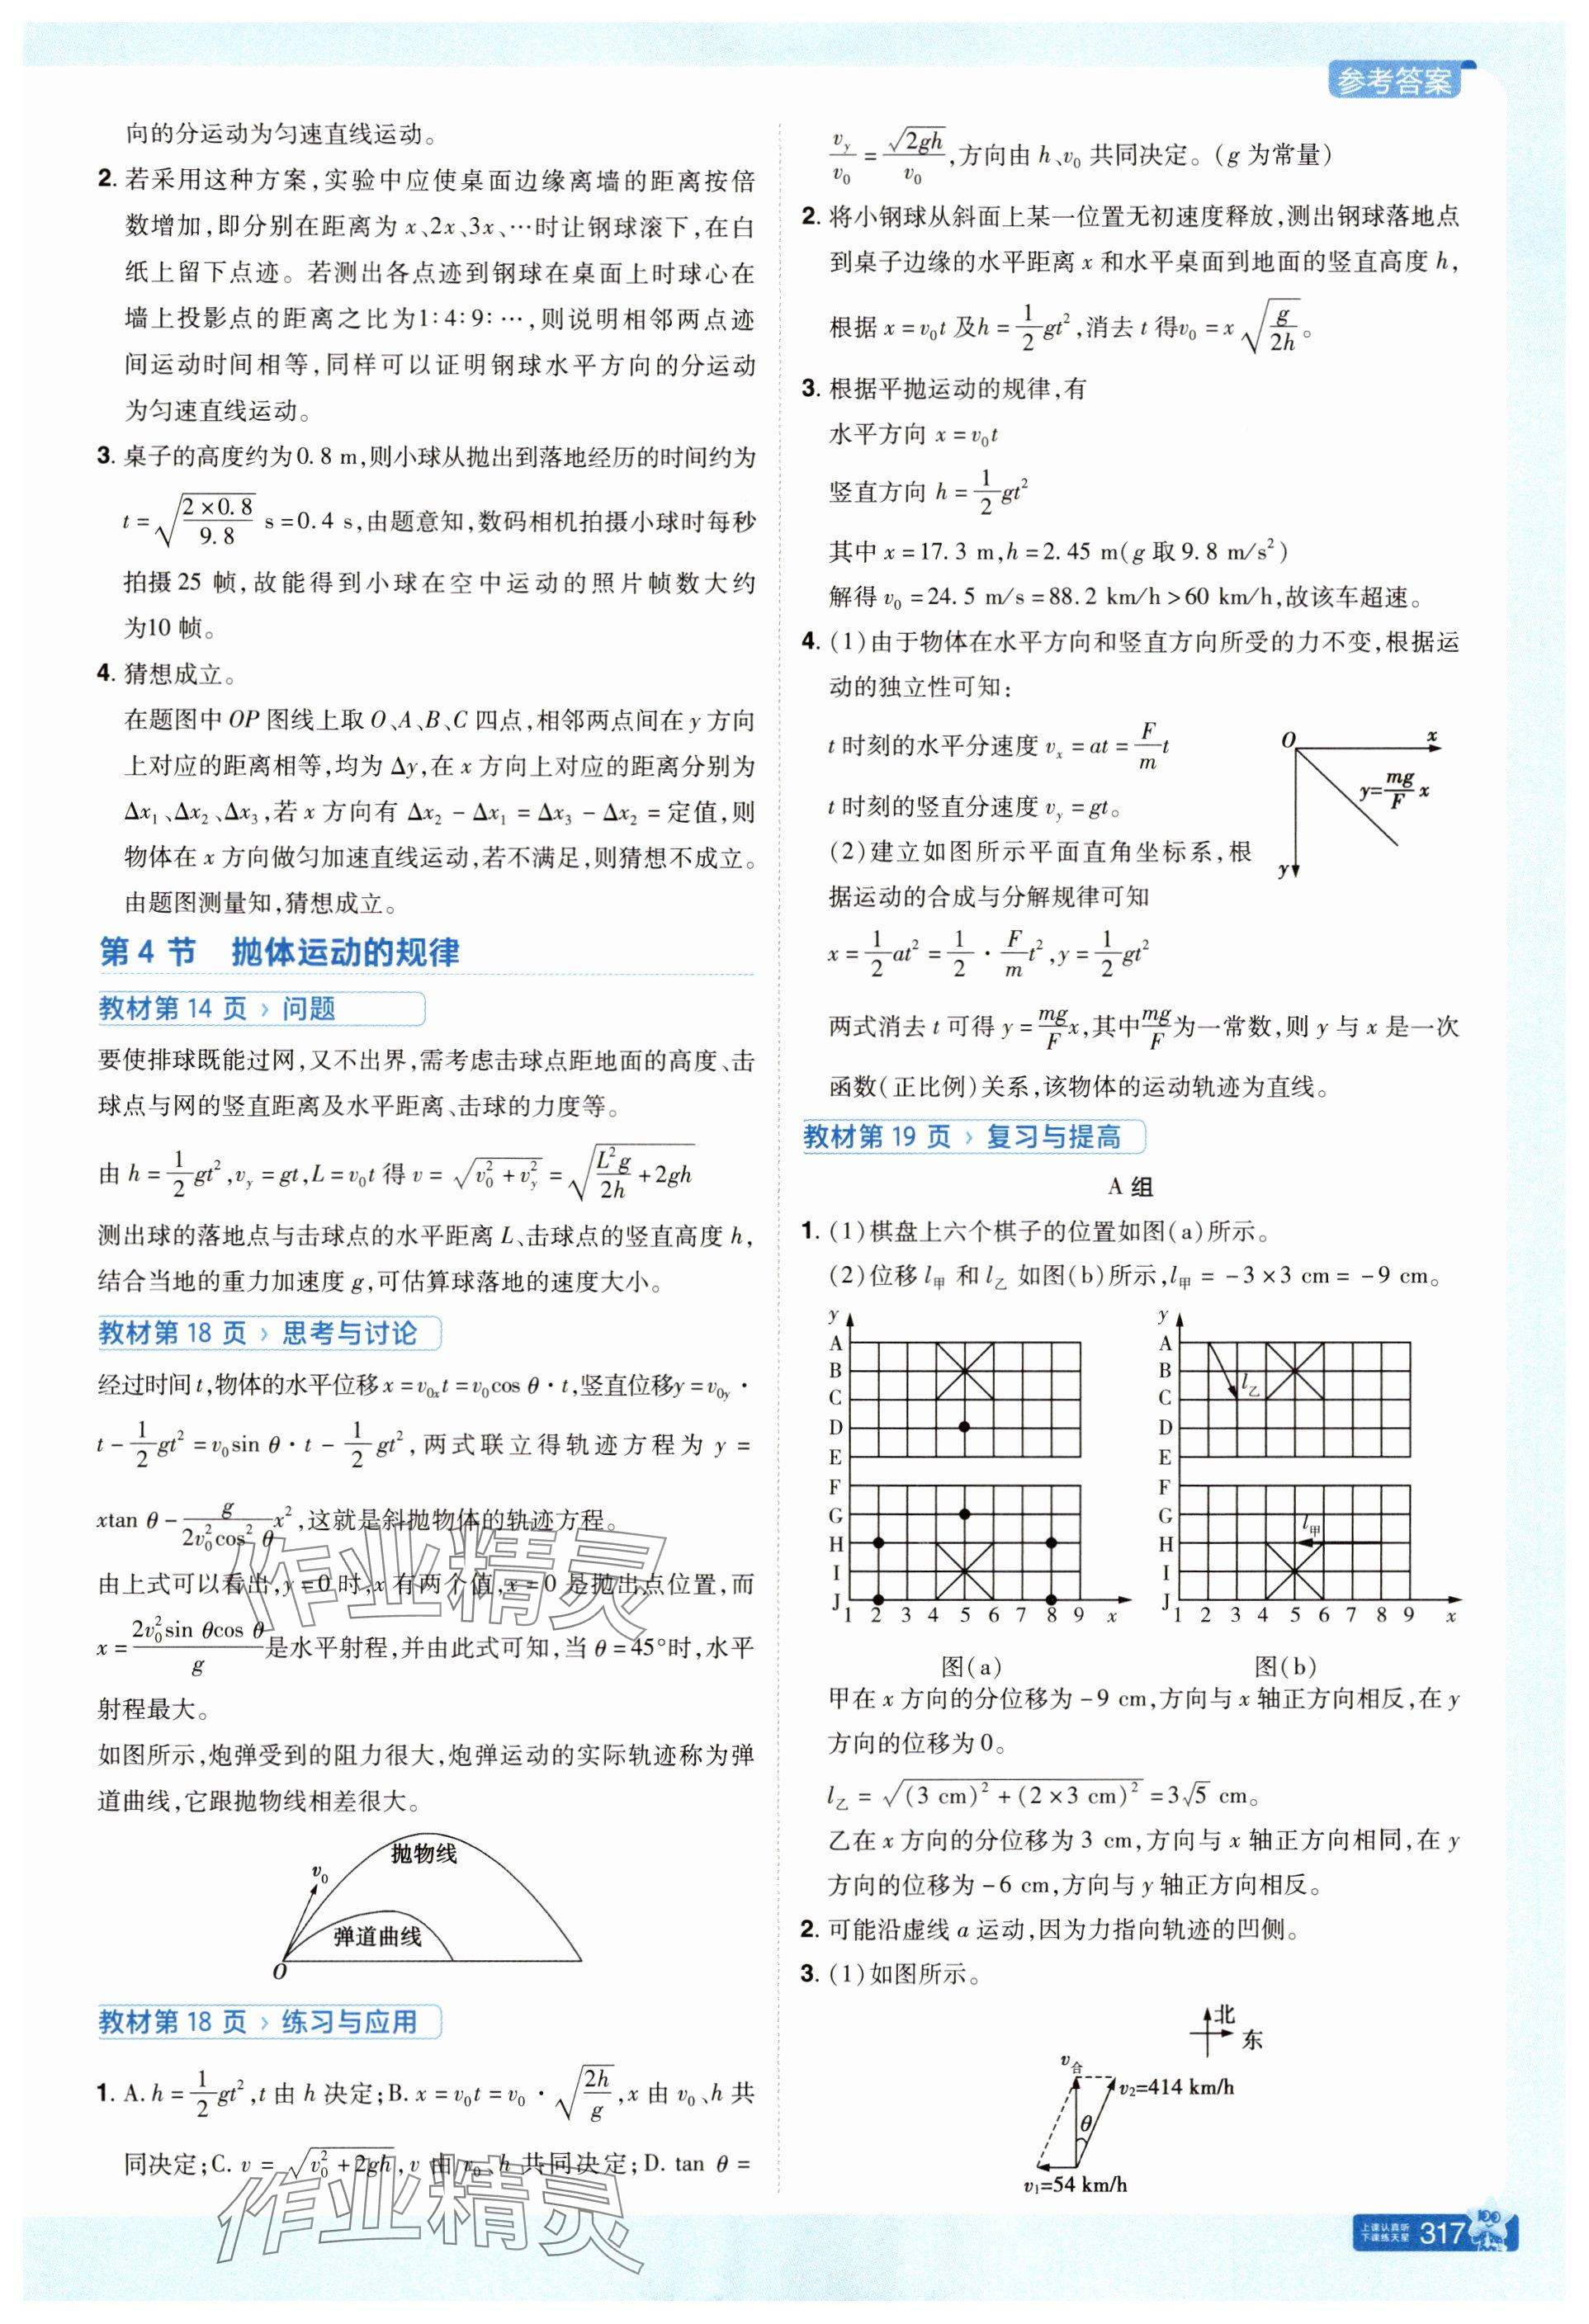 参考答案
向的分运动为匀速直线运动。
2. 若采用这种方案,实验中应使桌面边缘离墙的距离按倍
数增加,即分别在距离为 x、2x、3x、…时让钢球滚下,在白
纸上留下点迹。若测出各点迹到钢球在桌面上时球心在
墙上投影点的距离之比为1∶4∶9∶…,则说明相邻两点迹
间运动时间相等,同样可以证明钢球水平方向的分运动
为匀速直线运动。
3. 桌子的高度约为0.8 m,则小球从抛出到落地经历的时间约为
t=√(2×0.8/9.8) s=0.4 s,由题意知,数码相机拍摄小球时每秒
拍摄25 帧,故能得到小球在空中运动的照片帧数大约
为10 帧。
4. 猜想成立。
在题图中 OP 图线上取 O、A、B、C 四点,相邻两点间在 y 方向
上对应的距离相等,均为 Δy,在 x 方向上对应的距离分别为
Δx₁、Δx₂、Δx₃,若 x 方向有 Δx₂-Δx₁=Δx₃-Δx₂=定值,则
物体在 x 方向做匀加速直线运动,若不满足,则猜想不成立。
由题图测量知,猜想成立。
第 4 节 抛体运动的规律
教材第 14 页 › 问题
要使排球既能过网,又不出界,需考虑击球点距地面的高度、击
球点与网的竖直距离及水平距离、击球的力度等。
由 h=1/2gt²,v_y=gt,L=v₀t 得 v=√(v₀²+v_y²)=√(L²g/2h+2gh)
测出球的落地点与击球点的水平距离 L、击球点的竖直高度 h,
结合当地的重力加速度 g,可估算球落地的速度大小。
教材第 18 页 › 思考与讨论
经过时间 t,物体的水平位移 x=v₀ₓt=v₀cos θ·t,竖直位移y=v₀y·
t-1/2gt²=v₀sin θ·t-1/2gt²,两式联立得轨迹方程为 y=
xtan θ-g/(2v₀²cos² θ)x²,这就是斜抛物体的轨迹方程。
由上式可以看出,y=0 时,x 有两个值,x=0 是抛出点位置,而
x=2v₀²sin θcos θ/g是水平射程,并由此式可知,当 θ=45°时,水平
射程最大。
如图所示,炮弹受到的阻力很大,炮弹运动的实际轨迹称为弹
道曲线,它跟抛物线相差很大。
抛物线
v₀
弹道曲线
O
教材第 18 页 › 练习与应用
1. A. h=1/2gt²,t 由 h 决定;B. x=v₀t=v₀·√(2h/g),x 由 v₀、h 共
同决定;C. v=√(v₀²+2gh),v 由 v₀、h 共同决定;D. tan θ=
v_y/v₀=√(2gh)/v₀,方向由 h、v₀ 共同决定。(g 为常量)
2. 将小钢球从斜面上某一位置无初速度释放,测出钢球落地点
到桌子边缘的水平距离 x 和水平桌面到地面的竖直高度 h,
根据 x=v₀t 及h=1/2gt²,消去 t 得v₀=x√(g/2h)。
3. 根据平抛运动的规律,有
水平方向 x=v₀t
竖直方向 h=1/2gt²
其中 x=17.3 m,h=2.45 m(g 取9.8 m/s²)
解得 v₀=24.5 m/s=88.2 km/h>60 km/h,故该车超速。
4. (1)由于物体在水平方向和竖直方向所受的力不变,根据运
动的独立性可知:
t 时刻的水平分速度 vₓ=at=F/m t
t 时刻的竖直分速度 v_y=gt。
(2)建立如图所示平面直角坐标系,根
据运动的合成与分解规律可知
O x
y=mg/F x
y
x=1/2at²=1/2·F/m t²,y=1/2gt²
两式消去 t 可得 y=mg/F x,其中mg/F为一常数,则 y 与 x 是一次
函数(正比例)关系,该物体的运动轨迹为直线。
教材第 19 页 › 复习与提高
A 组
1. (1)棋盘上六个棋子的位置如图(a)所示。
(2)位移 l甲 和 l乙 如图(b)所示,l甲=-3×3 cm=-9 cm。
y
A
B
C
D
E
F
G
H
I
J
1 2 3 4 5 6 7 8 9 x
图(a)
y
A
B
C
D
E
F
G
H
I
J
l乙
l甲
1 2 3 4 5 6 7 8 9 x
图(b)
甲在 x 方向的分位移为-9 cm,方向与 x 轴正方向相反,在 y
方向的位移为0。
l乙=√((3 cm)²+(2×3 cm)²)=3√5 cm。
乙在 x 方向的分位移为 3 cm,方向与 x 轴正方向相同,在 y
方向的位移为-6 cm,方向与 y 轴正方向相反。
2. 可能沿虚线 a 运动,因为力指向轨迹的凹侧。
3. (1)如图所示。
北
东
v合
v₂=414 km/h
θ
v₁=54 km/h
作业精灵
作业精灵
上课认真听
下课练天星
317